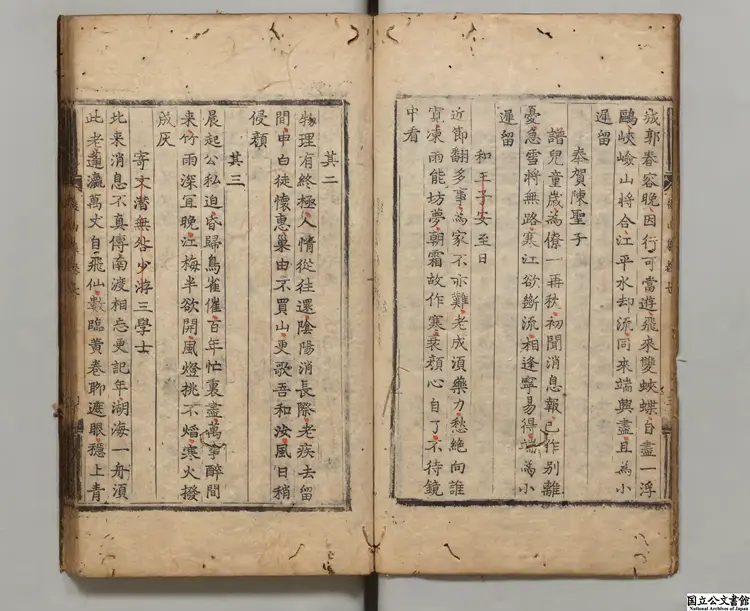 城郭春容晚因行可當遊飛來雙蛺蝶自盡一浮
鷗峽嶮山將合江平水却流同来端興盡且為小
遲留
奉賀陳聖子
譜兒童歲為僚一再秋初聞消息報已作別離
憂急雪將無路寒江欲斷流相逢寧易得端為小
遲留
和王子安至日
近節翻多事為家不亦難老成須藥力愁絶向誰
寬凍雨能坊夢朝霜故作寒衰顏心自了不待鏡
中看
其二
物理有終極人情從往還陰陽消長際老疾去留
間申白徒懷惠巢由不買山更歌吾和汝風日稍
侵顏
其三
晨起公私迫昏歸鳥雀催百年忙裏盡萬事醉間
来竹雨深宜晚江梅半欲開風燈挑不熖寒火撥
啟灰
寄文潛無咎少游三學士
北来消息不真傳南渡相忘更記年湖海一舟須
此老蓬瀛萬丈自飛仙數臨黃卷聊遮眼穩上青
国立公文書館
National Archives of Japan